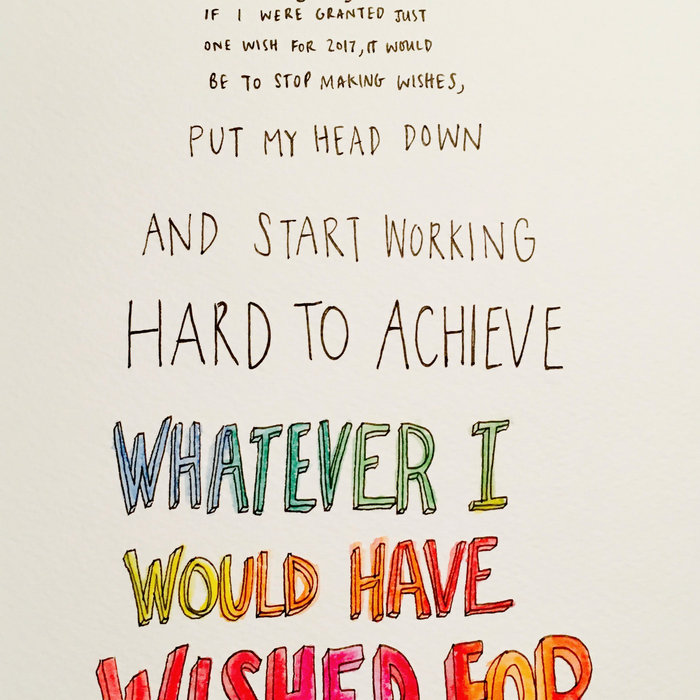 IF I WERE GRANTED JUST
ONE WISH FOR 2017, IT WOULD
BE TO STOP MAKING WISHES,
PUT MY HEAD DOWN
AND START WORKING
HARD TO ACHIEVE
WHATEVER I
WOULD HAVE
WISHED FOR